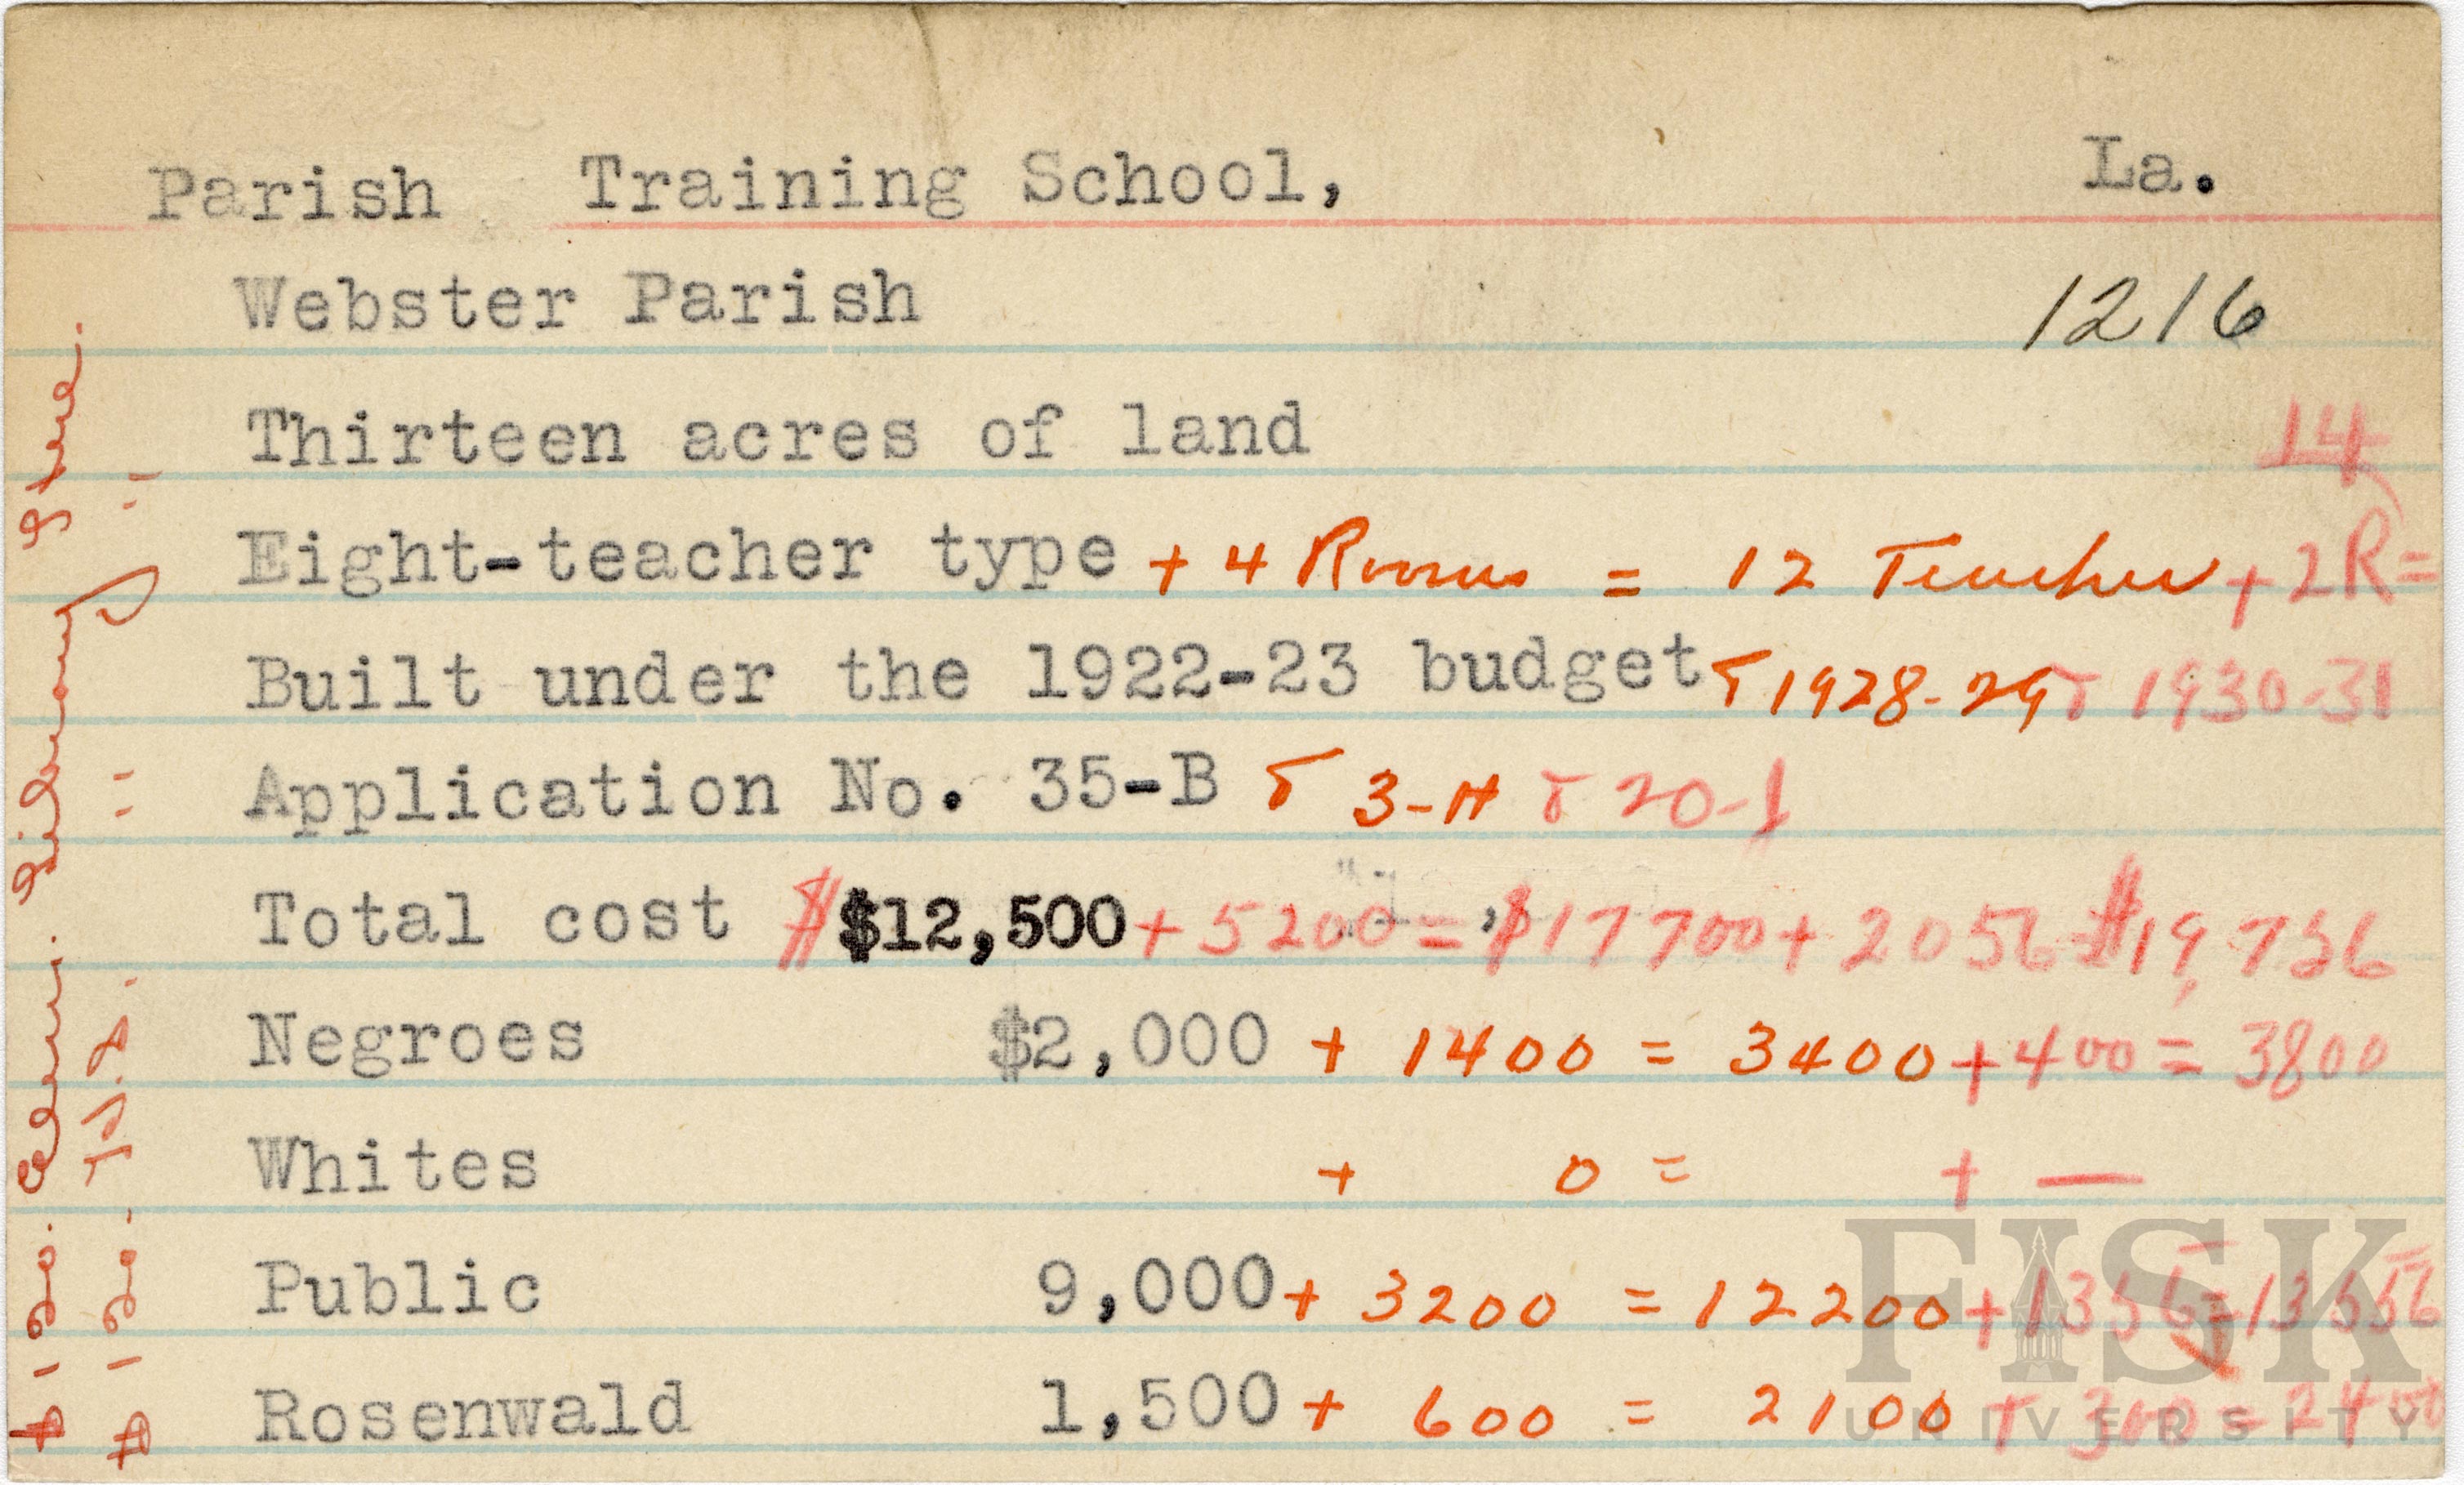 Parish Training School, La.
Webster Parish 1216
Thirteen acres of land 14
Eight-teacher type + 4 Rooms = 12 Teacher + 2R =
Built under the 1922-23 budget & 1928-29 & 1930-31
Application No. 35-B & 3-H & 20-J
Total cost $ $12,500 + 5200 = $17700 + 2056 = $19,756
Negroes $2,000 + 1400 = 3400 + 400 = 3800
Whites + 0 = + —
Public 9,000 + 3200 = 12200 + 1356 = 13556
Rosenwald 1,500 + 600 = 2100 + 300 = 2400
$-120. Elem. Library
$-120. H.S. " "
FISK
UNIVERSITY